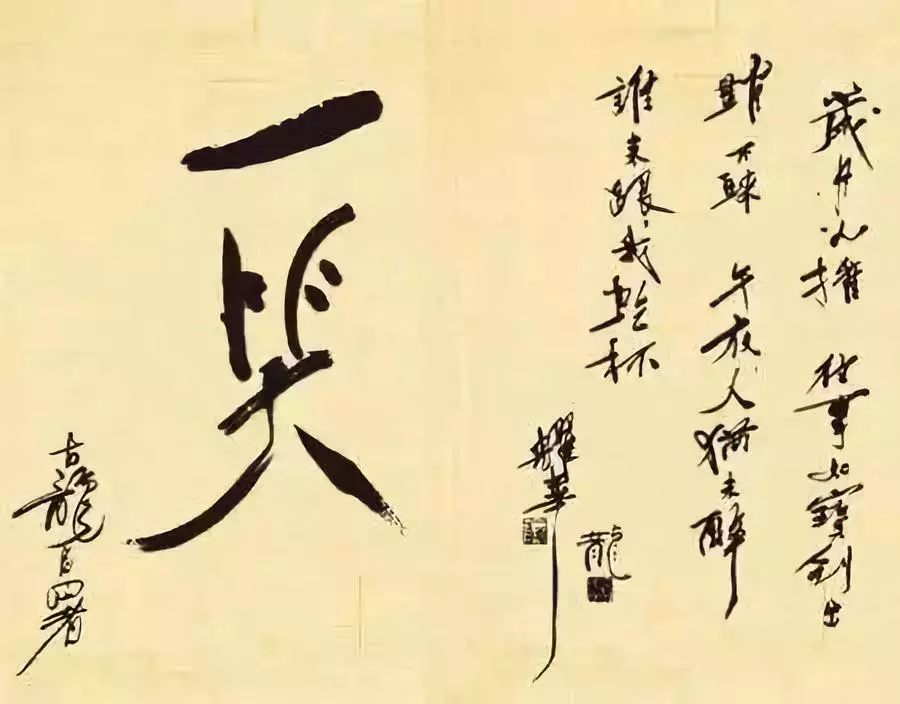 歲月 往事如寶劍出
鞘不 午夜人猶未醉
誰來跟我乾杯
耀華
龍
一笑
古龍自署